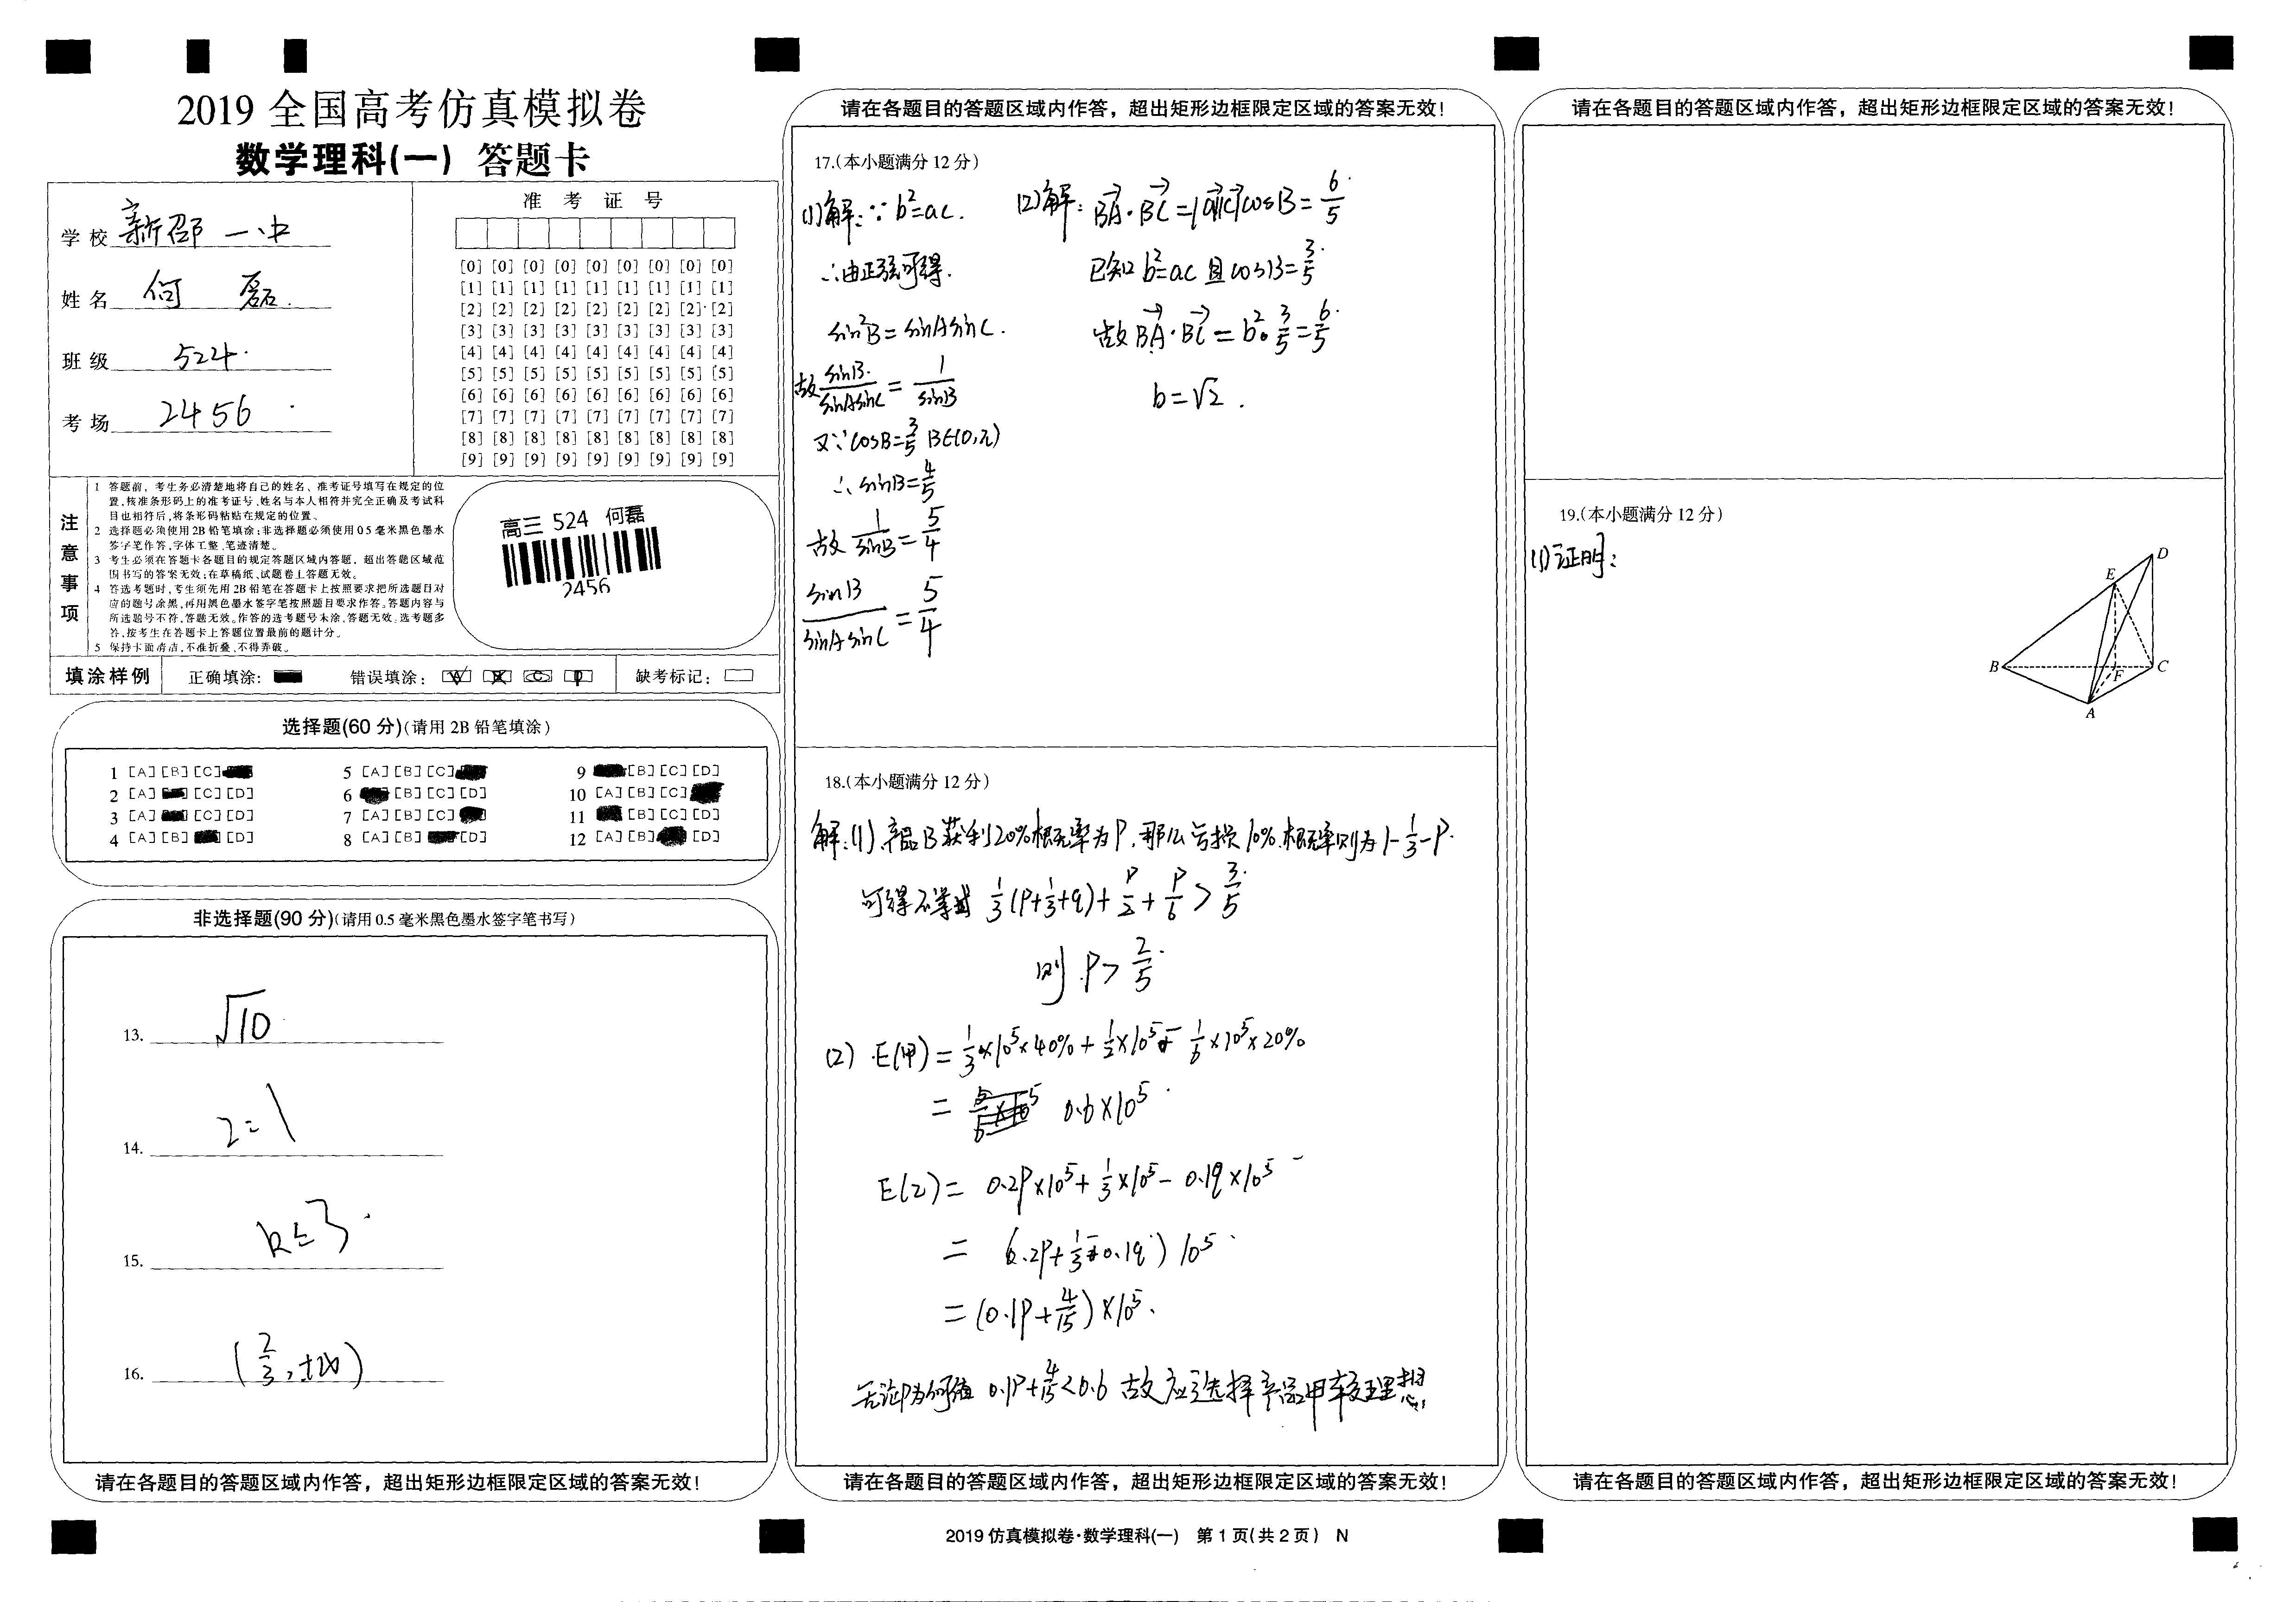 2019 全国高考仿真模拟卷
数学理科(一) 答题卡
学校 新邵一中
姓名 何磊
班级 524
考场 2456
准考证号
[0] [0] [0] [0] [0] [0] [0] [0] [0]
[1] [1] [1] [1] [1] [1] [1] [1] [1]
[2] [2] [2] [2] [2] [2] [2] [2] [2]
[3] [3] [3] [3] [3] [3] [3] [3] [3]
[4] [4] [4] [4] [4] [4] [4] [4] [4]
[5] [5] [5] [5] [5] [5] [5] [5] [5]
[6] [6] [6] [6] [6] [6] [6] [6] [6]
[7] [7] [7] [7] [7] [7] [7] [7] [7]
[8] [8] [8] [8] [8] [8] [8] [8] [8]
[9] [9] [9] [9] [9] [9] [9] [9] [9]
注意事项
1 答题前，考生务必清楚地将自己的姓名、准考证号填写在规定的位
置，核准条形码上的准考证号、姓名与本人相符并完全正确及考试科
目也相符后，将条形码粘贴在规定的位置。
2 选择题必须使用2B铅笔填涂；非选择题必须使用05毫米黑色墨水
签字笔作答，字体工整、笔迹清楚。
3 考生必须在答题卡各题目的规定答题区域内答题，超出答题区域范
围书写的答案无效；在草稿纸、试题卷上答题无效。
4 答选考题时，考生须先用2B铅笔在答题卡上按照要求把所选题目对
应的题号涂黑，再用黑色墨水签字笔按照题目要求作答。答题内容与
所选题号不符，答题无效。作答的选考题号未涂，答题无效。选考题多
答，按考生在答题卡上答题位置最前的题计分。
5 保持卡面清洁，不准折叠、不得弄破。
高三 524 何磊
2456
填涂样例 正确填涂： 错误填涂： 缺考标记：
选择题(60分)(请用2B铅笔填涂)
1 [A] [B] [C]
2 [A] [C] [D]
3 [A] [C] [D]
4 [A] [B] [D]
5 [A] [B] [C]
6 [B] [C] [D]
7 [A] [B] [C]
8 [A] [B] [D]
9 [B] [C] [D]
10 [A] [B] [C]
11 [B] [C] [D]
12 [A] [B] [D]
非选择题(90分)(请用0.5毫米黑色墨水签字笔书写)
13. √10
14. z=1
15. k≤3
16. (2/3,+∞)
请在各题目的答题区域内作答，超出矩形边框限定区域的答案无效！
请在各题目的答题区域内作答，超出矩形边框限定区域的答案无效！
17.(本小题满分12分)
(1)解：∵b²=ac.
∴由正弦可得.
sin²B=sinAsinC.
故 sinB/sinAsinC = 1/sinB
又∵cosB=3/5 B∈(0,π)
∴sinB=4/5
故 1/sinB = 5/4
sinB/sinAsinC = 5/4
(2)解：BA·BC=|a||c|cosB=6/5
已知b²=ac且cosB=3/5
故BA·BC=b²·3/5=6/5
b=√2.
18.(本小题满分12分)
解:(1).产品B获利20%概率为P,那么亏损10%.概率则为1-1/3-P.
可得不等式 1/3(P+1/3+q)+P/2+P/6>3/5
则.P>2/5.
(2) E(甲)=1/3×10⁵×40%+1/2×10⁵- 1/6×10⁵×20%
= 0.6×10⁵
E(乙)= 0.2P×10⁵+1/3×10⁵-0.1q×10⁵
= (0.2P+1/3-0.1q)10⁵
=(0.1P+4/15)×10⁵.
无论P为何值 0.1P+4/15<0.6 故应选择产品甲较理想
请在各题目的答题区域内作答，超出矩形边框限定区域的答案无效！
2019仿真模拟卷·数学理科(一) 第1页(共2页) N
请在各题目的答题区域内作答，超出矩形边框限定区域的答案无效！
19.(本小题满分12分)
(1)证明：
D
E
B
F
C
A
请在各题目的答题区域内作答，超出矩形边框限定区域的答案无效！